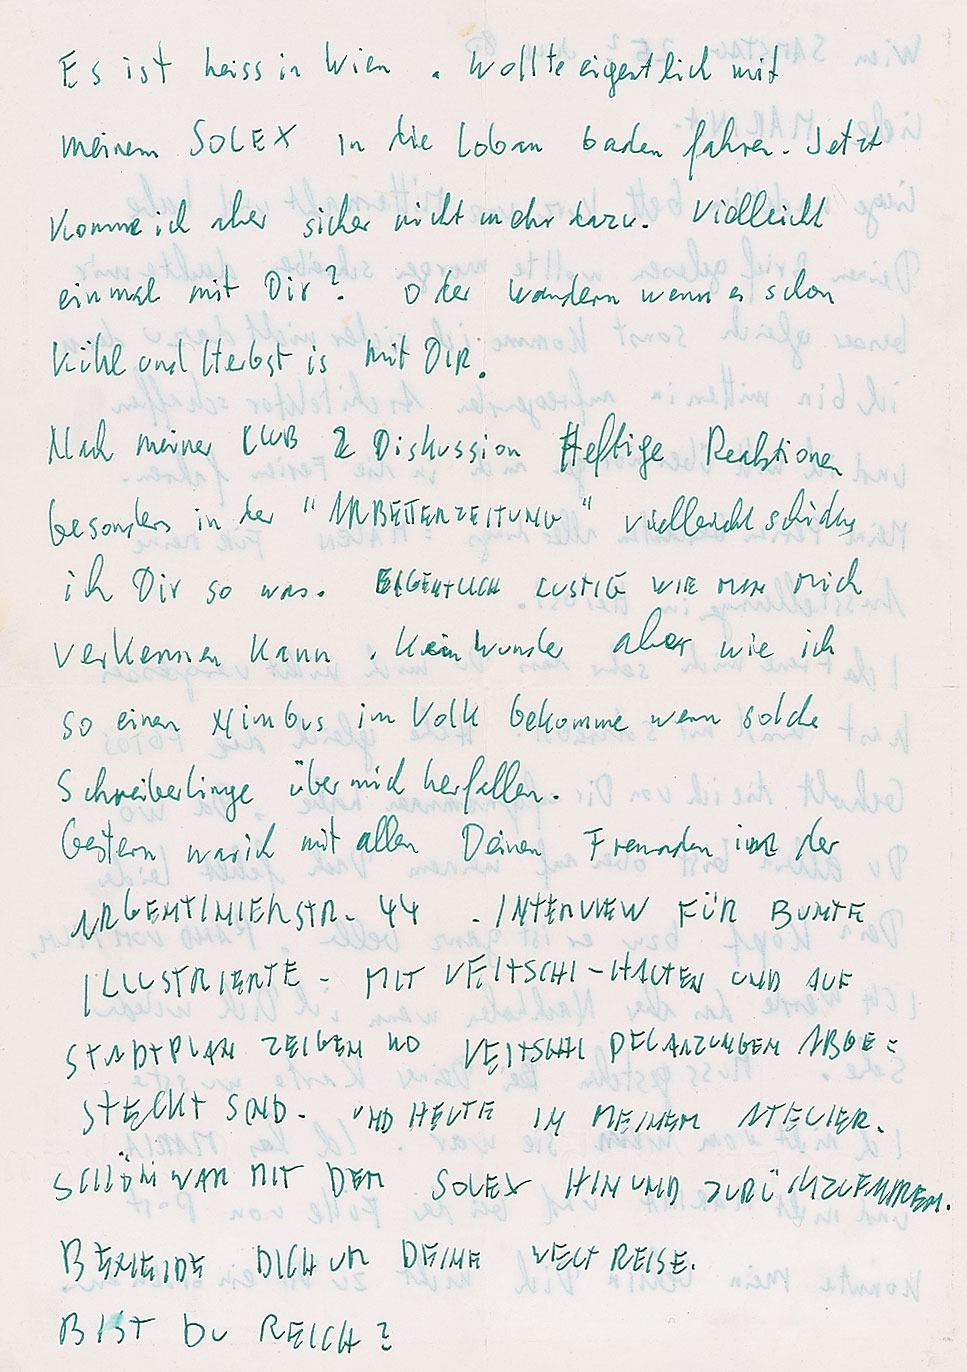 Es ist heiss in Wien. Wollte eigentlich mit
meinem SOLEX in die Lobau baden fahren. Jetzt
komme ich aber sicher nicht mehr dazu. Vielleicht
einmal mit Dir? Oder Wandern wenn es schon
kühl und Herbst is mit DIR.
Nach meiner CLUB 2 Diskussion Heftige Reaktionen
besonders in der "ARBEITERZEITUNG" vielleicht schicke
ich Dir so was. EIGENTLICH LUSTIG WIE man mich
verkennen kann. Kein Wunder aber wie ich
so einen Nimbus im Volk bekomme wenn solche
Schreiberlinge über mich herfallen.
Gestern war ich mit allen Deinen Freunden in der
ARGENTINIERSTR. 44. INTERVIEW FÜR BUNTE
ILLUSTRIERTE - MIT VEITSCHI-HALTEN UND AUF
STADTPLAN ZEIGEN WO VEITSCHI PFLANZUNGEN ABGE=
STECKT SIND. UND HEUTE IN MEINEM ATELIER.
SCHÖN WAR MIT DEM SOLEX HIN UND ZURÜCKZUFAHREN.
BENEIDE DICH UM DEINE WELTREISE.
BIST DU REICH?